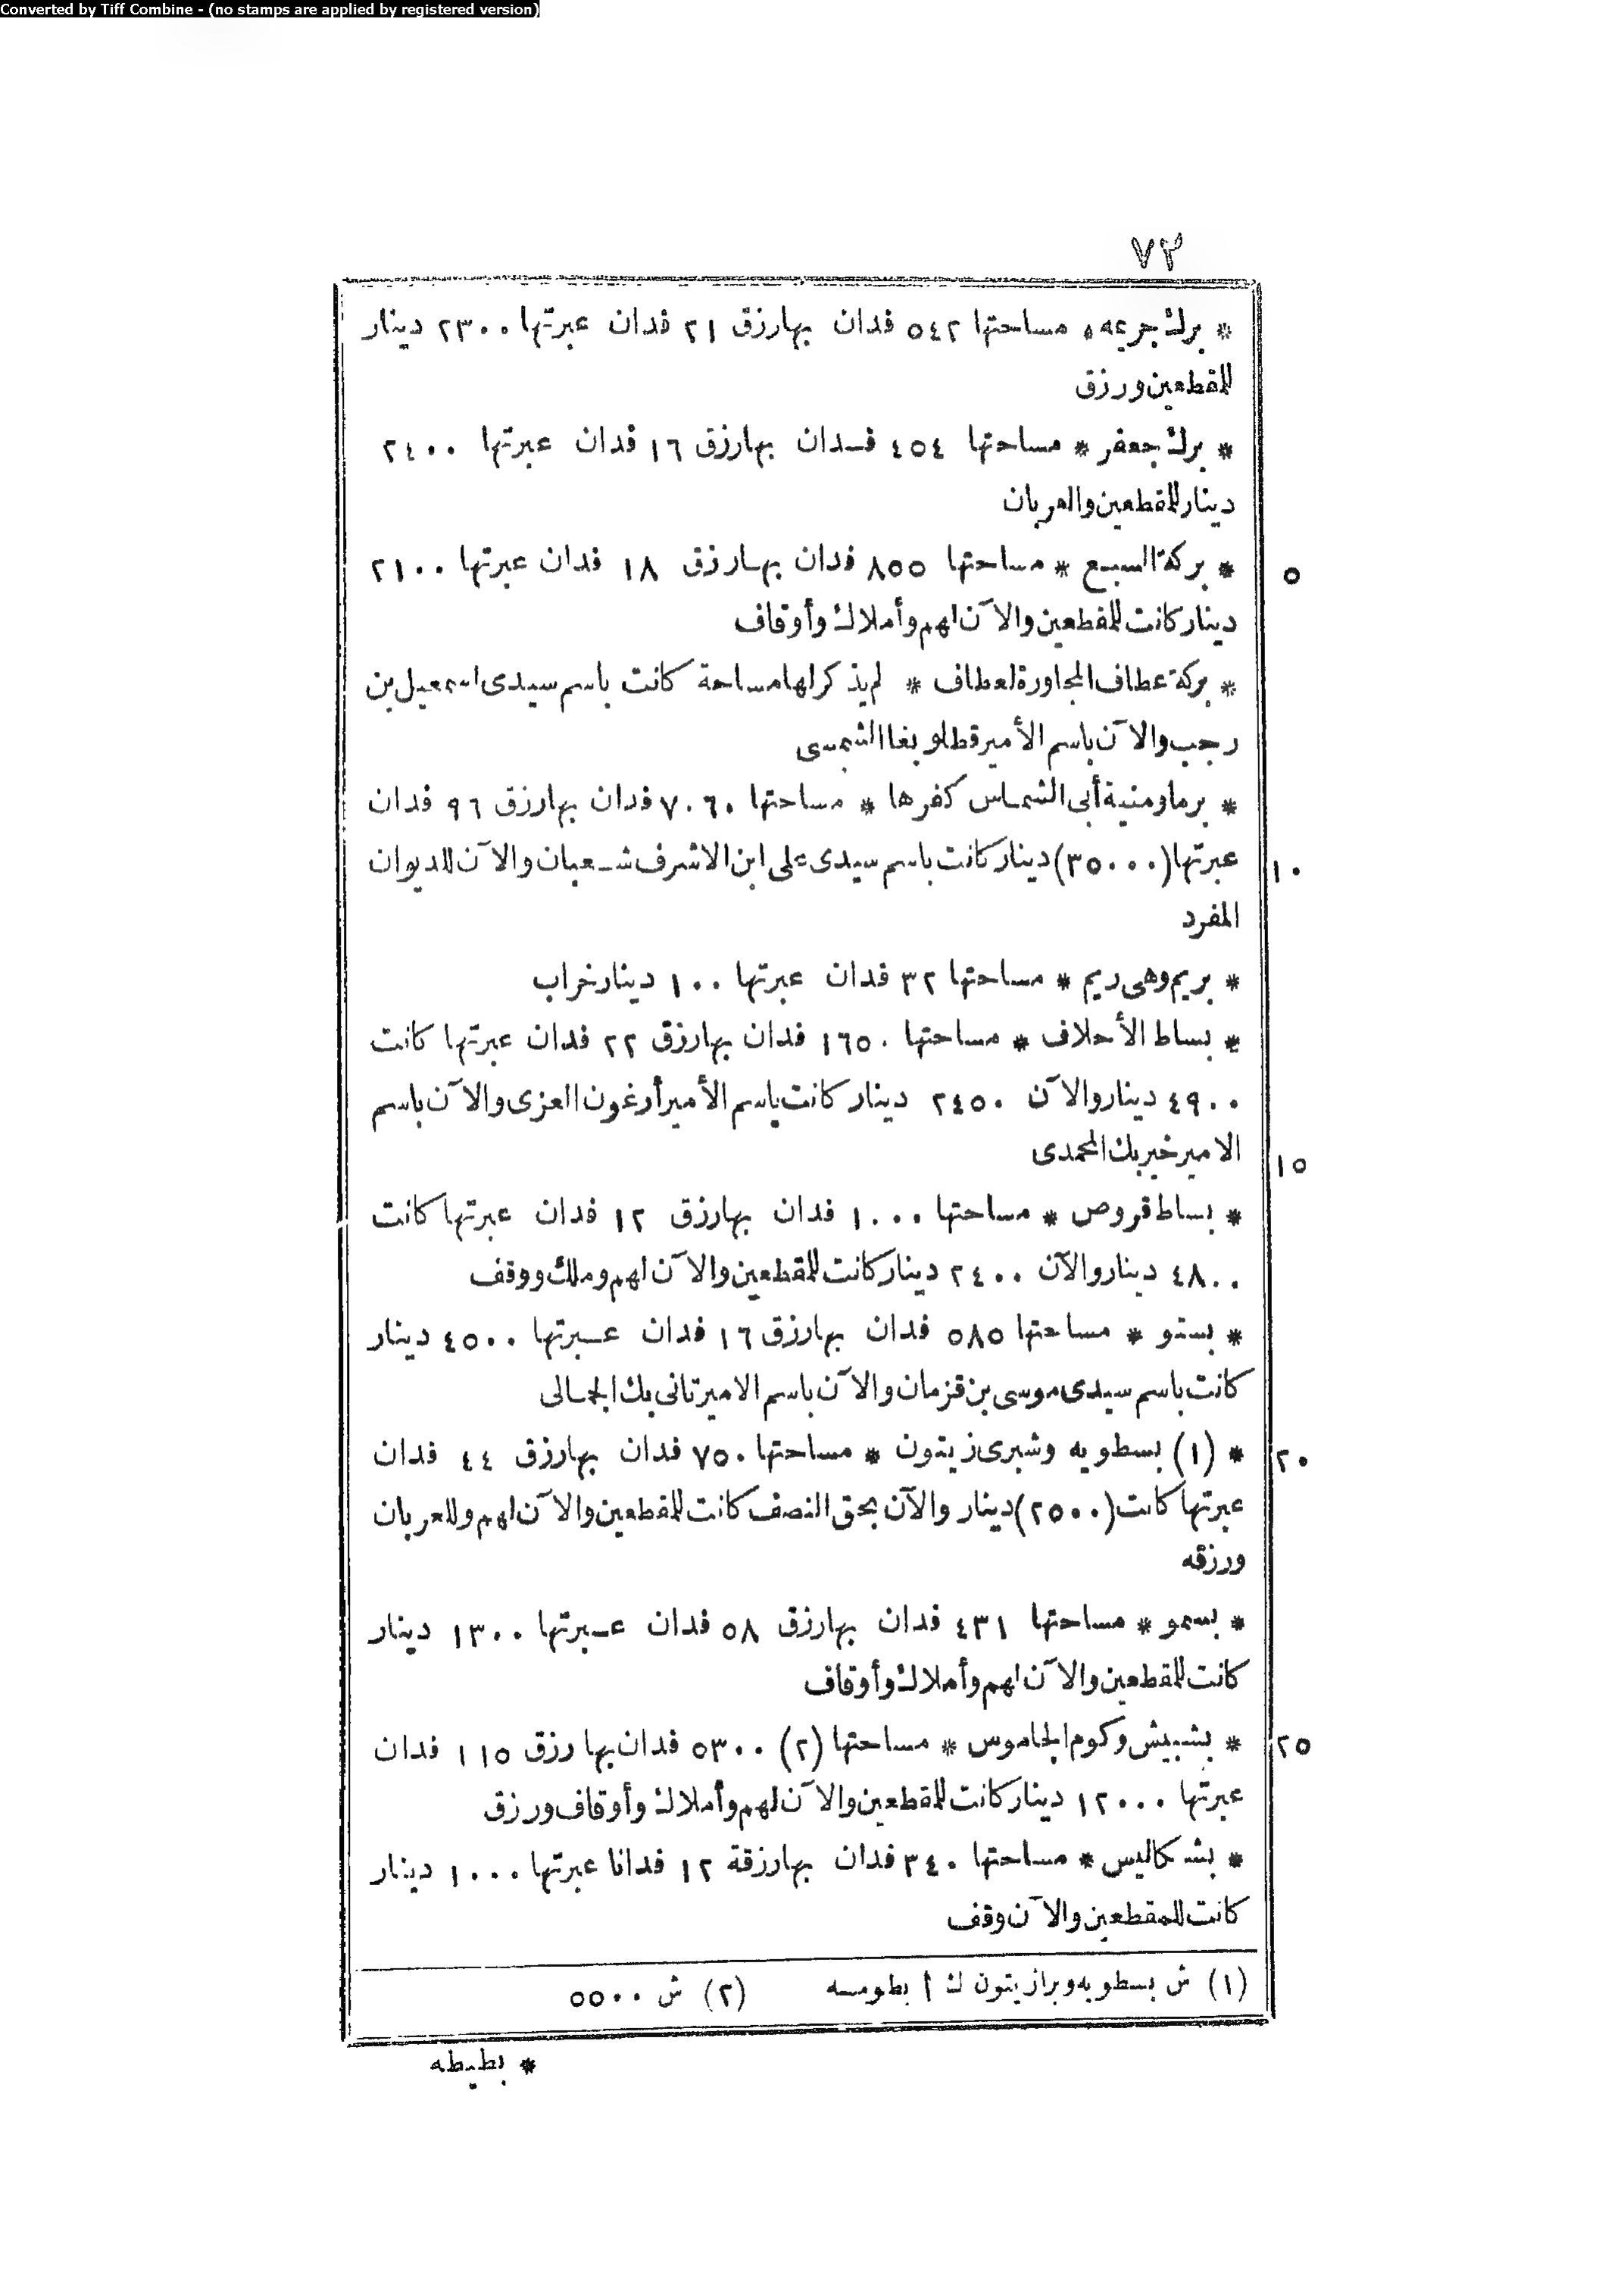 Converted by Tiff Combine - (no stamps are applied by registered version)
٧٢
* برك جريعه * مساحتها ٥٤٢ فدان بها رزق ٢١ فدان عبرتها ٢٣٠٠ دينار
للمقطعين ورزق
* برك جعفر * مساحتها ٤٥٤ فدان بها رزق ١٦ فدان عبرتها ٢٤٠٠
دينار للمقطعين والعربان
* بركة السبع * مساحتها ٨٥٥ فدان بها رزق ١٨ فدان عبرتها ٢١٠٠
٥
دينار كانت للمقطعين والآن لهم وأملاك وأوقاف
* بركة عطاف المجاورة لعطاف * لم يذكر لها مساحة كانت باسم سيدى اسمعيل بن
رجب والآن باسم الأمير قطلوبغا الشمسى
* برما ومنية أبى الشماس كفرها * مساحتها ٧٠٦٠ فدان بها رزق ٩٦ فدان
عبرتها (٣٥٠٠٠) دينار كانت باسم سيدى على ابن الاشرف شعبان والآن للديوان
١٠
المفرد
* بريم وهى ريم * مساحتها ٣٢ فدان عبرتها ١٠٠ دينار خراب
* بساط الأحلاف * مساحتها ١٦٥٠ فدان بها رزق ٢٢ فدان عبرتها كانت
٤٩٠٠ دينار والآن ٢٤٥٠ دينار كانت باسم الأمير أرغون العزى والآن باسم
الامير خير بك المحمدى
١٥
* بساط قروص * مساحتها ١٠٠٠ فدان بها رزق ١٢ فدان عبرتها كانت
٤٨٠٠ دينار والآن ٢٤٠٠ دينار كانت للمقطعين والآن لهم وملك ووقف
* بستو * مساحتها ٥٨٥ فدان بها رزق ١٦ فدان عبرتها ٤٥٠٠ دينار
كانت باسم سيدى موسى بن قزمان والآن باسم الامير تانى بك الجمالى
* (١) بسطويه وشبرى زيتون * مساحتها ٧٥٠ فدان بها رزق ٤٤ فدان
٢٠
عبرتها كانت (٢٥٠٠) دينار والآن بحق النصف كانت للمقطعين والآن لهم وللعربان
ورزقه
* بسمو * مساحتها ٤٣١ فدان بها رزق ٥٨ فدان عبرتها ١٣٠٠ دينار
كانت للمقطعين والآن لهم وأملاك وأوقاف
* بشبيش وكوم الجاموس * مساحتها (٢) ٥٣٠٠ فدان بها رزق ١١٥ فدان
٢٥
عبرتها ١٢٠٠٠ دينار كانت للمقطعين والآن لهم وأملاك وأوقاف ورزق
* بشكاليس * مساحتها ٣٤٠ فدان بها رزقة ١٢ فدانا عبرتها ١٠٠٠ دينار
كانت للمقطعين والآن وقف
(١) ش بسطويه وبرازيتون ك أ بطومسه (٢) ش ٥٥٠٠
* بطيطه